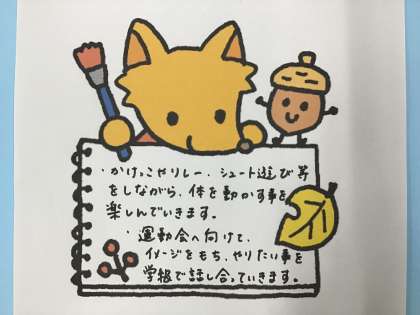 ・かけっこやリレー、シュート遊び等
をしながら、体を動かす事を
楽しんでいきます。
・運動会へ向けて、
イメージをもち、やりたい事を
学級で話し合っていきます。